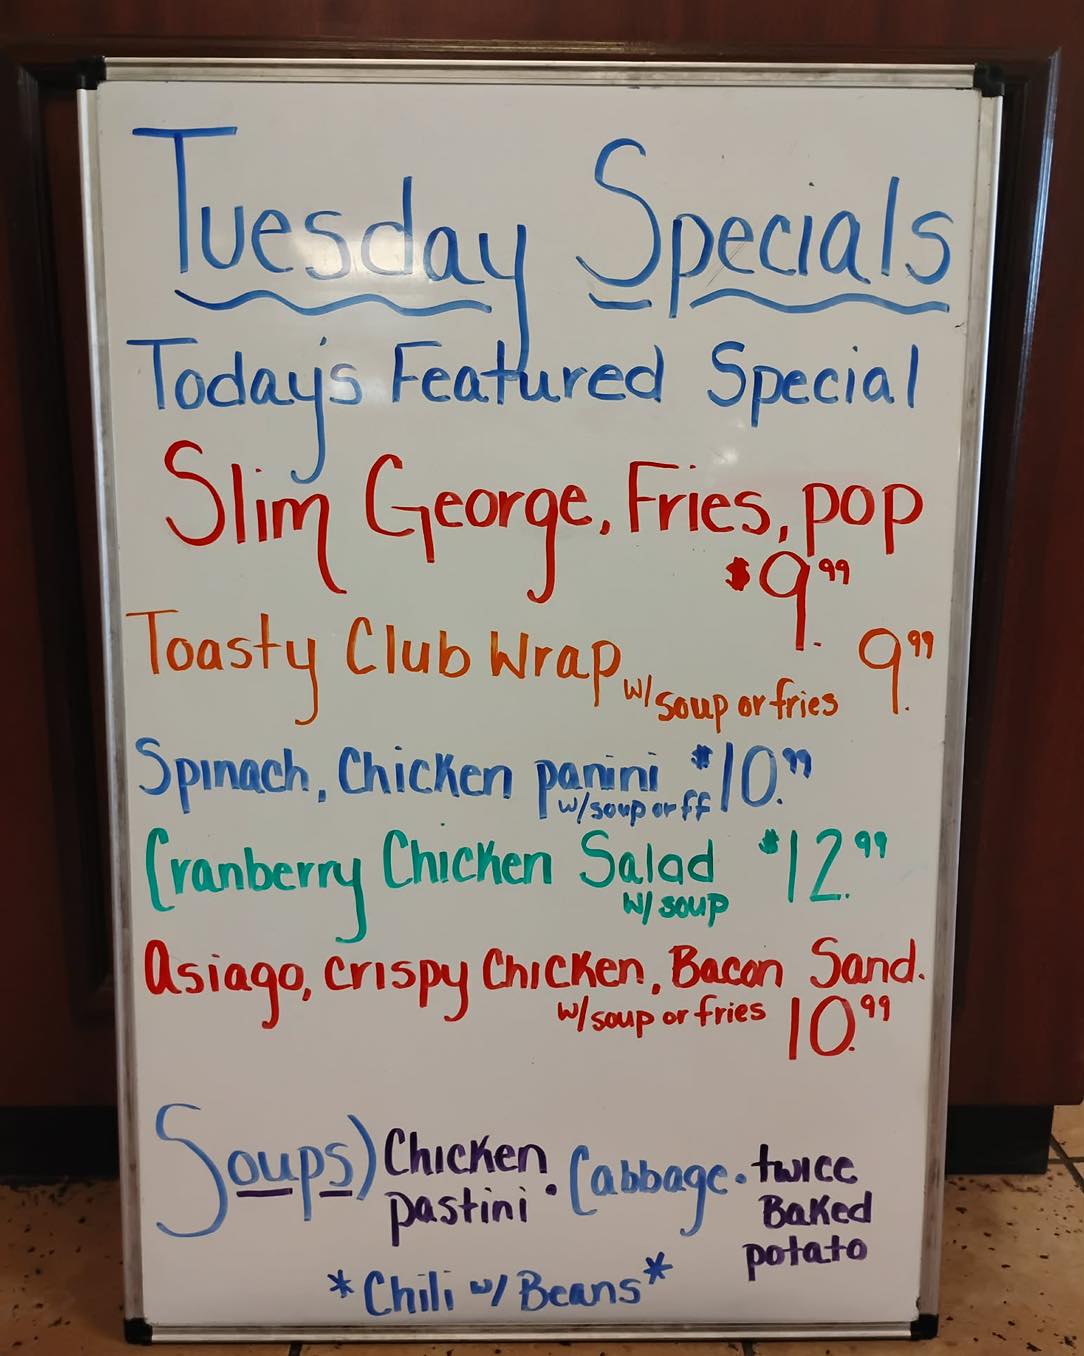 Tuesday Specials
Today's Featured Special
Slim George, Fries, pop
$9.99
Toasty Club Wrap w/soup or fries 9.99
Spinach, Chicken panini $10.99
w/soup or ff
Cranberry Chicken Salad $12.99
w/ soup
Asiago, crispy Chicken, Bacon Sand.
w/soup or fries 10.99
Soups) Chicken pastini • Cabbage • twice Baked potato
*Chili w/ Beans*